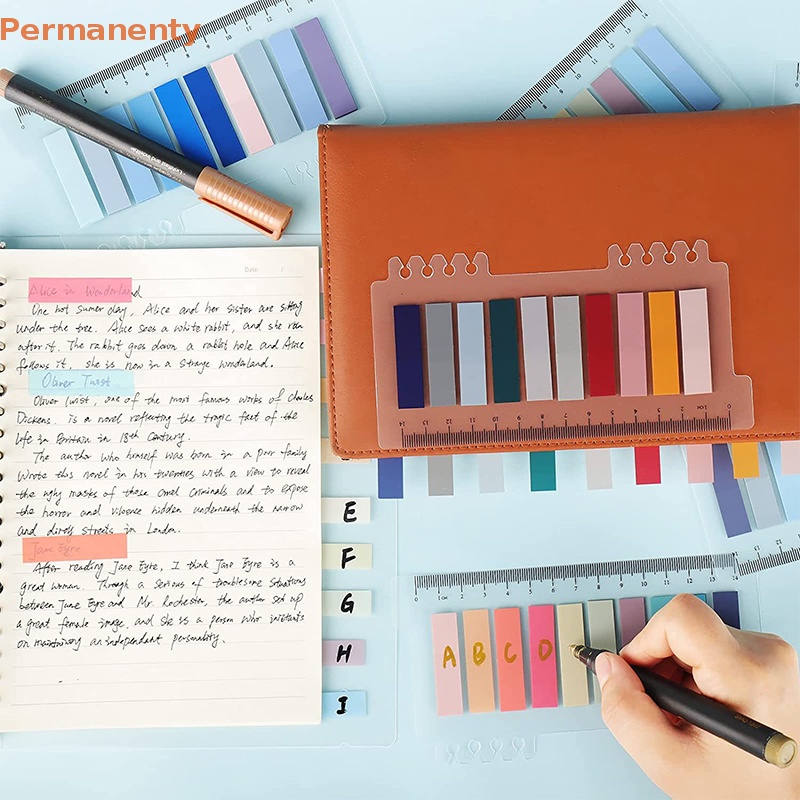 Permanenty
Date: /
Alice in Wonderland
One hot sumer day, Alice and her sister are sitting
under the tree. Alice sees a white rabbit, and she run
after it. The rabbit goes down a rabbit hole and Alice
follows it, she is now in a strange wonderland.
Oliver Twist
Oliver Twist, one of the most famous works of Charles
Dickens. is a novel reflecting the tragic fact of the
life in Britain in 18th Century.
The author who himself was born in a poor family
wrote this novel in his twenties with a view to reveal
the ugly masks of those cruel criminals and to expose
the horror and violence hidden underneath the narrow
and dirty streets in London.
Jane Eyre
After reading Jane Eyre, I think Jane Eyre is a
great woman. Through a serious of troublesome situations
between Jane Eyre and Mr. Rochester, the author set up
a great female image, and she is a person who insistants
on maintaining an independant personality.
E
F
G
H
I
A B C D